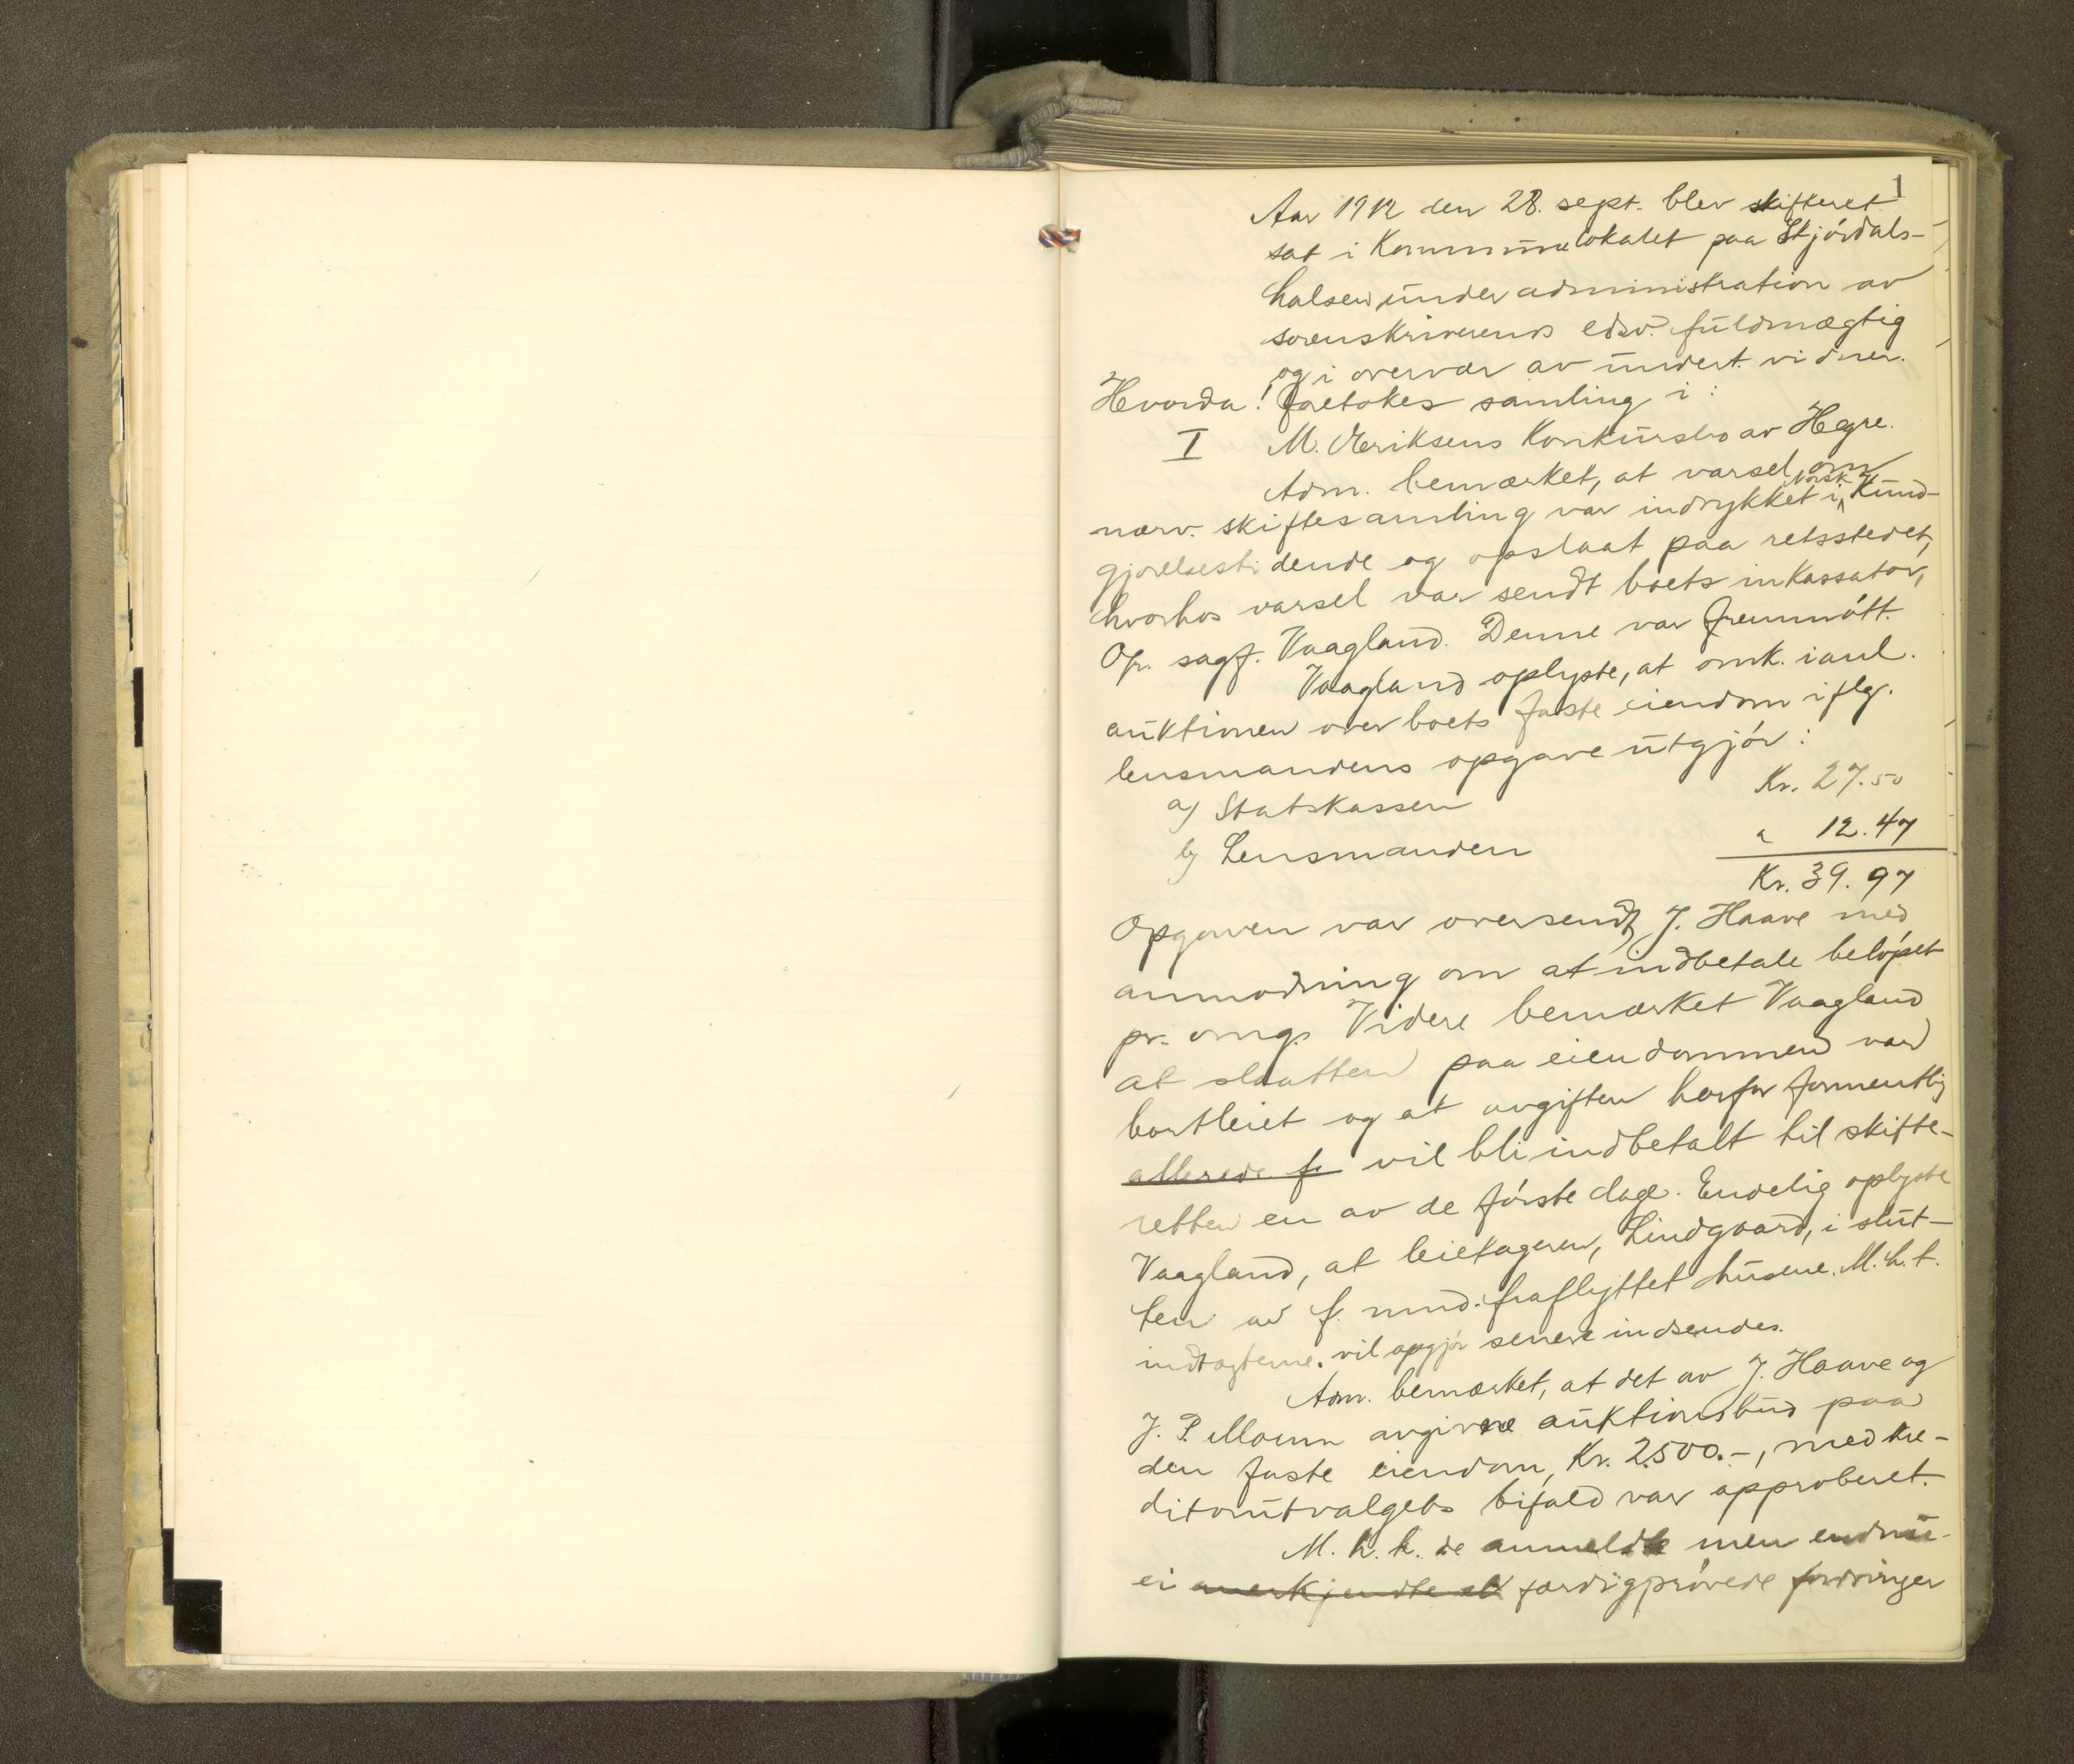 1
Aar 1912 den 28. sept. blev skifteret
sat i Kommunelokalet paa Stjórdals-
halsen under administration av
sorenskriverens edsv. fuldmægtig
og i overvær av undert. vidner.
Hvorda! foretokes samling i:
I M. Eriksens Konkursbo av Hegre.
Adm. bemærket, at varsel om
nærv. skiftesamling var indrykket i Norsk Kund-
gjørelsestidende og opslaat paa retsstedet,
hvorhos varsel var sendt boets inkassator,
Or. sagf. Vaagland. Denne var fremmótt.
Vaagland oplyste, at omk. i anl.
auktionen over boets faste eiendom iflg.
lensmandens opgave utgjór:
a) Statskassen Kr. 27.50
b) Lensmanden " 12.47
Kr. 39.97
Opgaven var oversendt J. Haave med
anmodning om at indbetale belópet
pr. omg. Videre bemærket Vaagland
at slaatten paa eiendommen var
bortleiet og at avgiften herfor formentlig
allerede f vil bli indbetalt til skifte-
retten en av de fórste dage. Endelig oplyste
Vaagland, at leietageren, Lindgaard, i slut-
ten av f. mnd. fraflyttet husene. M.h.t.
indtægterne vil opgjór senere indsendes.
Adm. bemærket, at det av J. Haave og
J. P. Moum avgivne auktionsbud paa
den faste eiendom, Kr. 2500.-, med kre-
ditorutvalgets bifald var approberet.
M. h. t. de anmeldte men endnu
ei anerkjendte el færdigpróvede fordringer